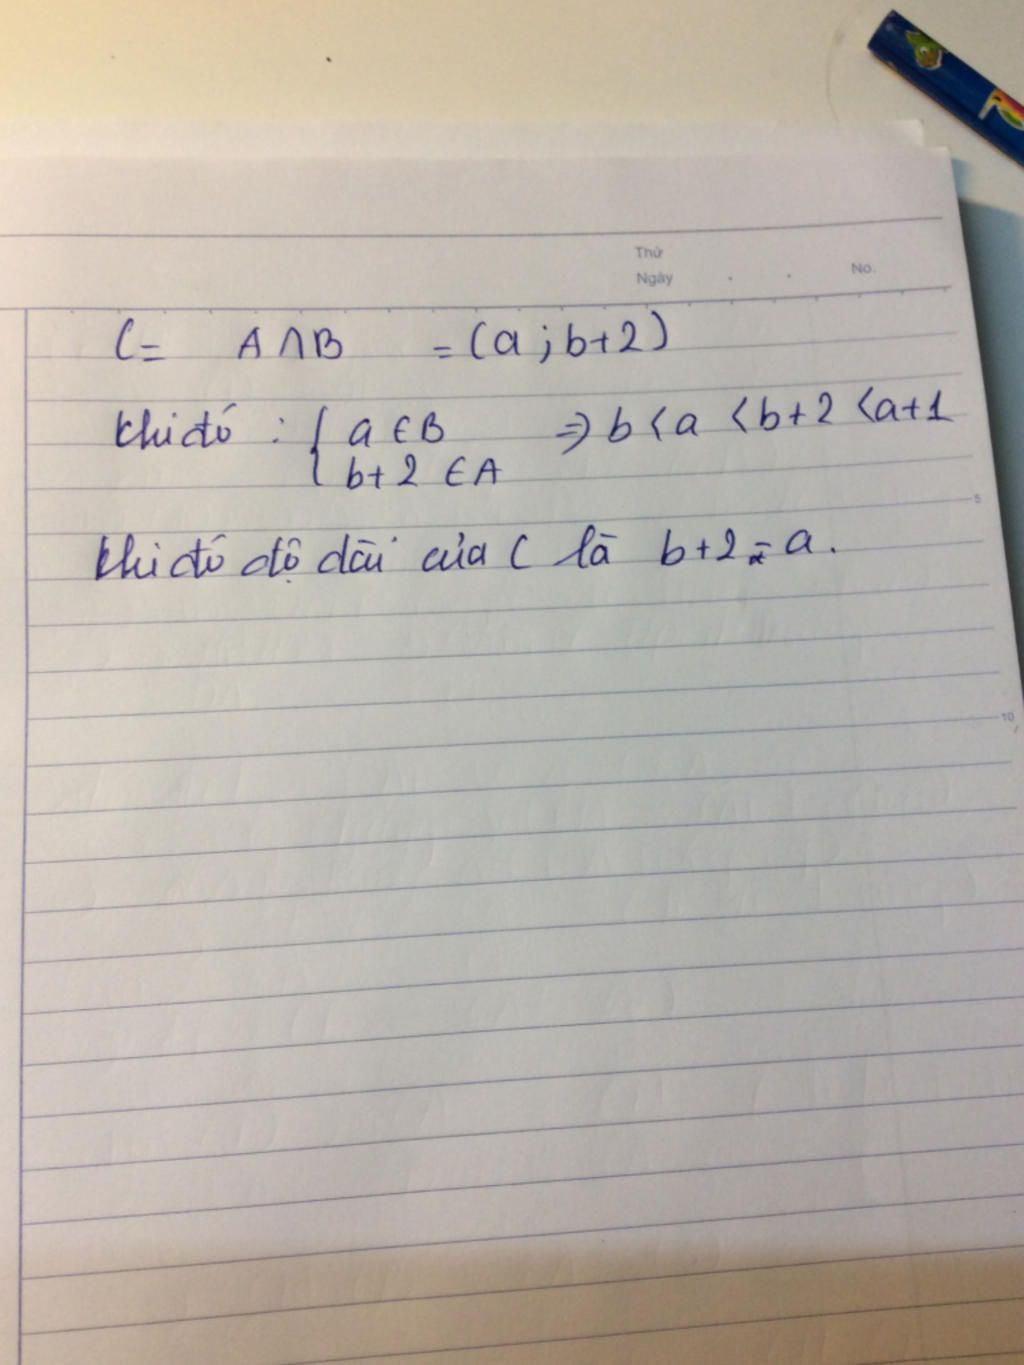 Thứ
Ngày . . No.
C = A ∩ B = (a ; b+2)
khi đó : { a ∈ B ⇒ b < a < b+2 < a+1
b+2 ∈ A
5
khi đó độ dài của C là b+2 - a.
10